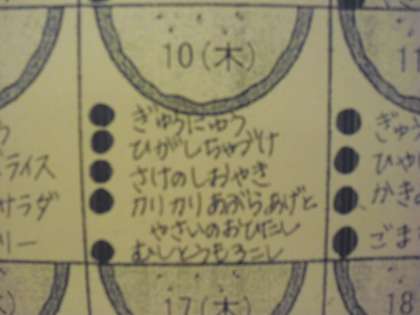 10(木)
11
ぎゅうにゅう
ひがしちゃづけ
さけのしおやき
カリカリあぶらあげと
やさいのおひたし
むしとうもろこし
ライス
サラダ
リー
ぎゅ
ひや
かき
ごま
17(木)
18